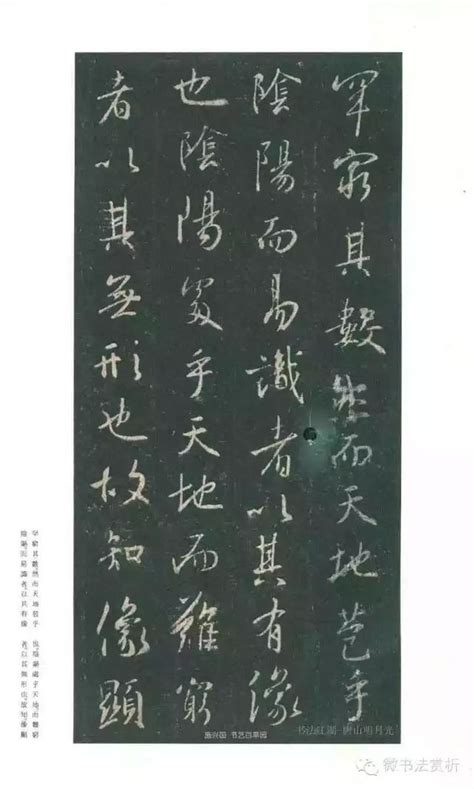 罕窮其數然而天地苞乎
陰陽而易識者以其有像
也陰陽處乎天地而難窮
者以其無形也故知像顯
罕窮其數，然而天地苞乎
陰陽而易識者，以其有像
也，陰陽處乎天地，而難窮
者，以其無形也，故知像顯
书法江湖-唐山明月光
书艺百草园
微书法赏析